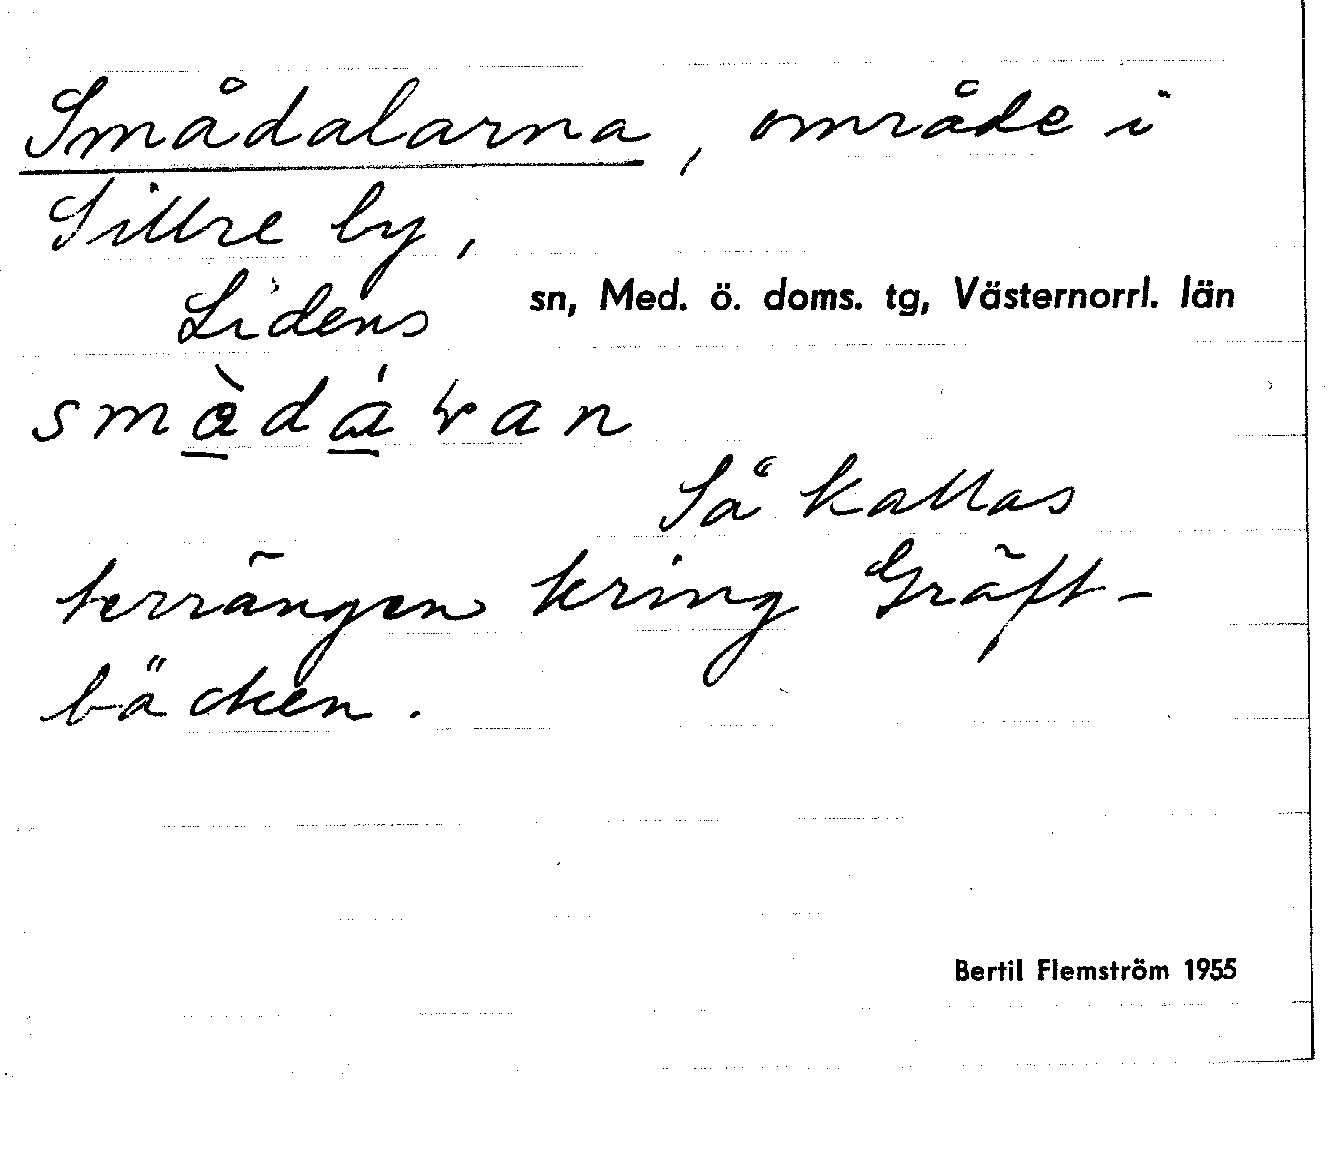 Smådalarna, område i
Sillre by,
Lidens sn, Med. ö. doms. tg, Västernorrl. län
Så kallas
terrängen kring Gräft-
bäcken.
Bertil Flemström 1955